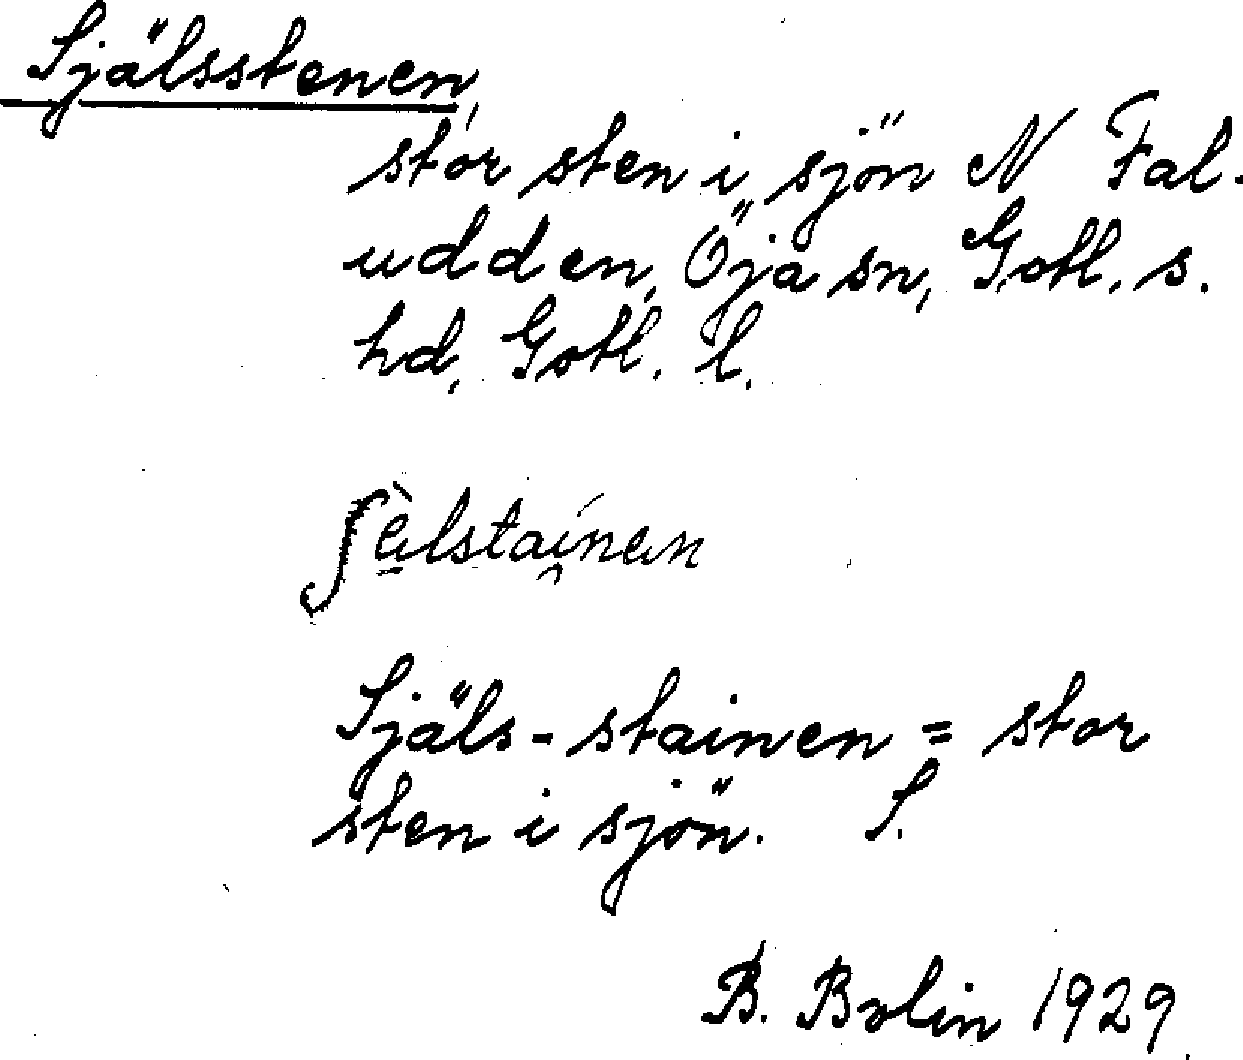 Själsstenen,
stor sten i sjön N Fal-
udden, Öja sn, Gotl. s.
hd, Gotl. l.
ʃèlstai̯nen
Själs-stainen = stor
sten i sjön. S.
B. Bolin 1929.